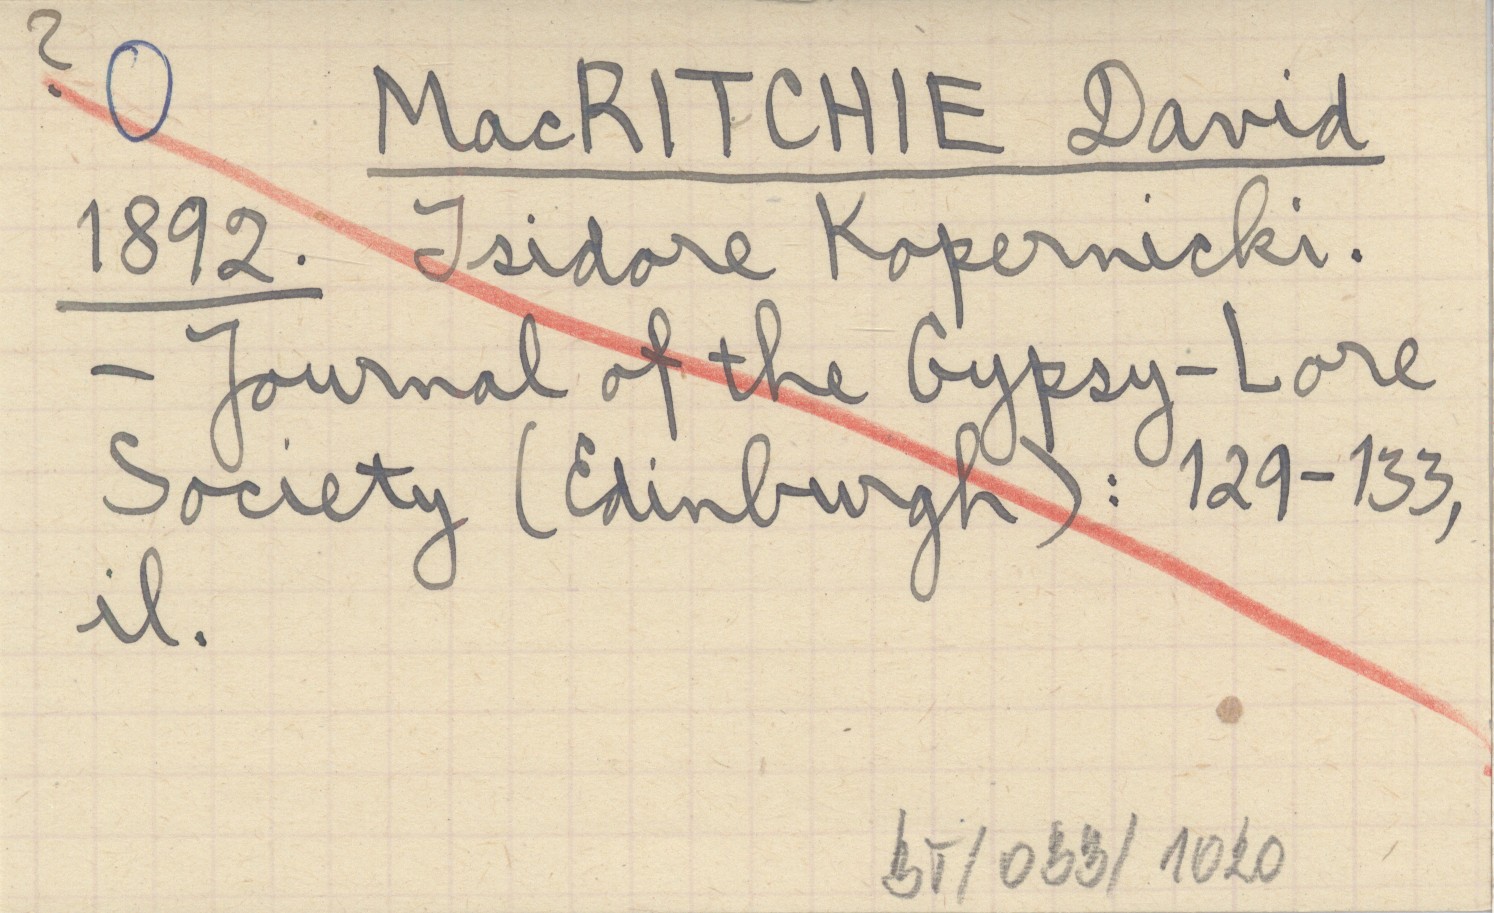 ? O MacRITCHIE David
1892. Isidore Kopernicki.
- Journal of the Gypsy-Lore
Society (Edinburgh): 129-133,
il.
1020